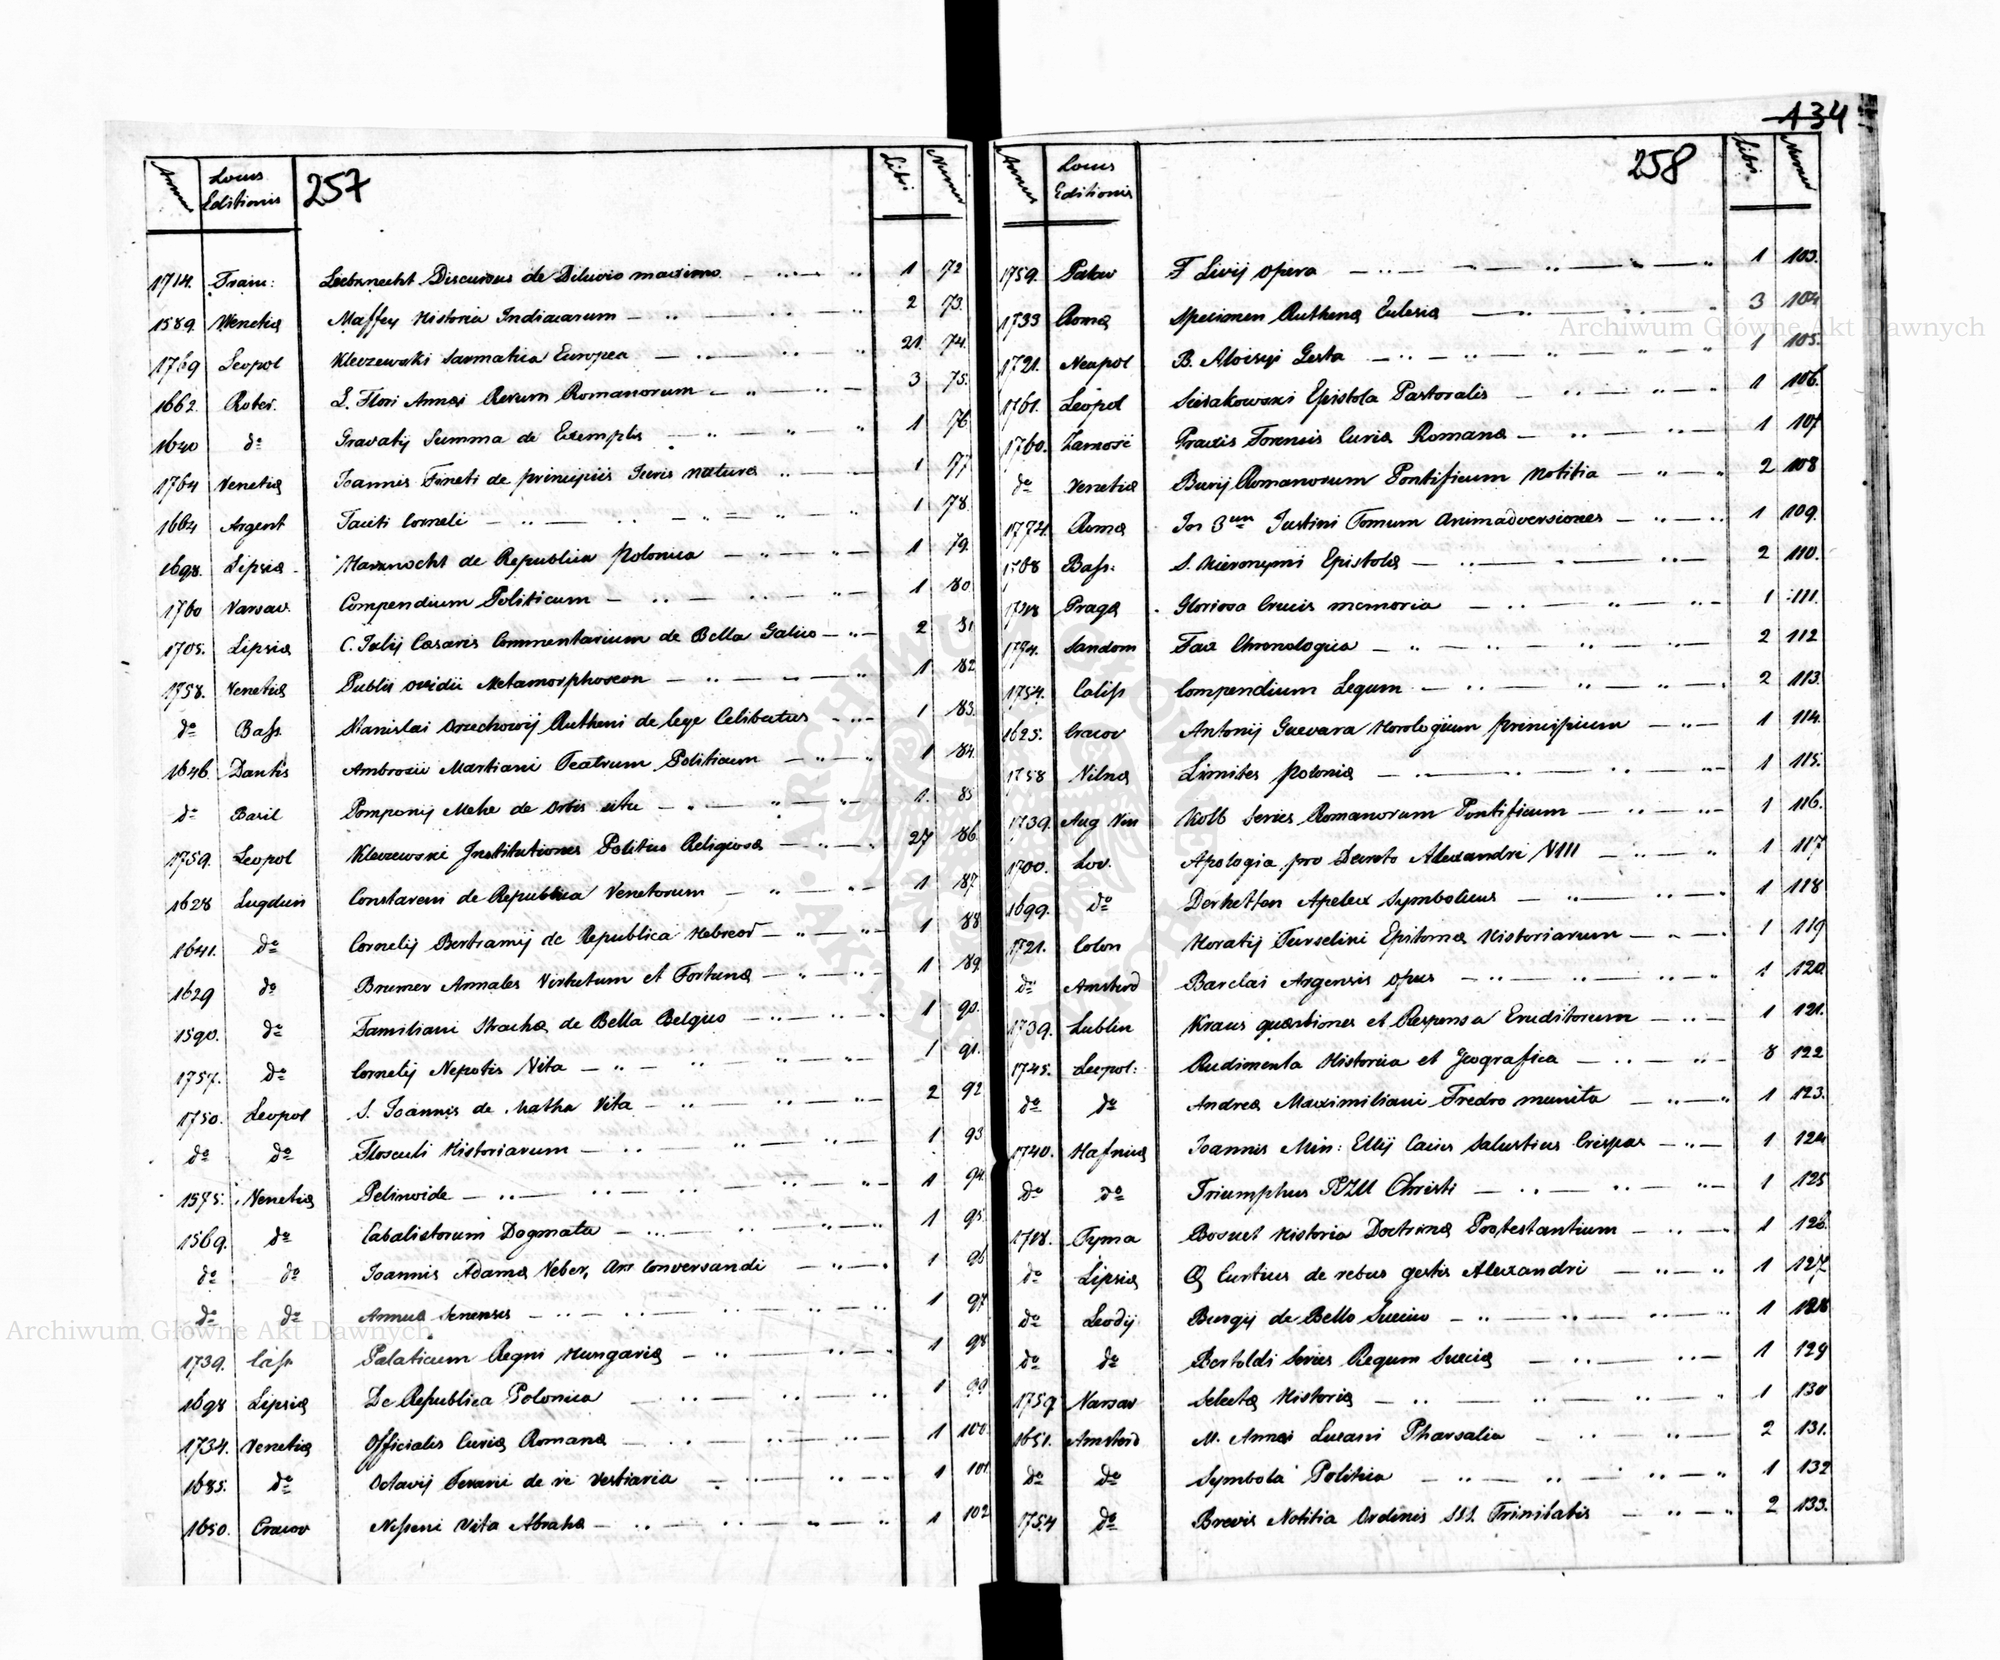 134
Annus Locus Editionis 257 Libri Numer
1714. Franc: Liebknecht Discursus de Diluvio maximo 1 72
1589. Venetiæ Maffey Historia Indiacarum 2 73.
1769 Leopol Kleczewski Sarmatica Europea 21. 74.
1662. Roter. L. Flori Annæi Rerum Romanorum 3 75.
1640 do Gravatij Summa de Exemplis 1 76
1764 Venetiæ Joannis Fineti de principiis Juris naturæ 1 77
1664 Argent Taciti Corneli 1 78.
1698. Lipsiæ Harknocht de Republica Polonica 1 79.
1760 Varsav. Compendium Politicum 1 80.
1705. Lipsiæ C. Julij Cæsaris Commentarium de Bello Galico 2 81
1758. Venetiæ Publii Ovidii Metamorphoseon 1 82
do Bass. Stanislai Orzechowij Rutheni de lege Celibatus 1 83.
1646. Dantis Ambrosii Martiani Teatrum Politicum 1 84.
do Basil Pomponij Mele de Orbis situ 1. 85
1759. Leopol Kleczewski Institutiones Politico Religiosæ 27 86.
1628 Lugdun Constareni de Republica Venetorum 1 87.
1641. do Cornelij Bertramij de Republica Hebreor 1 88
1629 do Brumer Annales Virtutum et Fortunæ 1 89.
1590. do Familiani Strachæ de Bella Belgico 1 90.
1757. do Cornelij Nepotis Vita 1 91.
1750. Leopol S. Joannis de Matha Vita 2 92
do do Flosculi Historiarum 1 93
1575. Venetiæ Pelinoide 1 94.
1569. do Cabalistorum Dogmata 1 95.
do do Joannis Adamæ Veber, Ars Conversandi 1 96
do do Annua Senensis 1 97.
1739. Cass. Palaticum Regni Hungariæ 1 98
1698 Lipsiæ De Republica Polonica 1 99
1734. Venetiæ Officialis Curiæ Romanæ 1 100.
1685. do Octavij Ferarii de re Vestiaria 1 101.
1650. Cracov Nisseni Vita Abrahæ 1 102
Annus Locus Editionis 258 Libri Numer
1759. Patav T Livij Opera 1 103.
1733 Romæ Specimen Ruthenæ Eclesiæ 3 104
1721. Neapol B. Aloisyi Gesta 1 105.
1761. Leopol Sierakowski Epistola Pastoralis 1 106.
1760. Zamosc Praxis Forensis Curiæ Romanæ 1 107
do Venetiæ Burij Romanorum Pontificum Notitia 2 108
1772. Romæ In 3um Justini Tomum Animadversiones 1 109.
1768 Bass: S. Hieronymi Epistolæ 2 110.
1718 Pragæ Gloriosa Crucis memoria 1 111.
1794. Sandom Fax Chronologica 2 112
1754. Caliss Compendium Legum 2 113.
1625. Cracov Antonij Guevara Horologium principium 1 114.
1758 Vilnæ Limites Poloniæ 1 115.
1739. Aug Vin Kolb Series Romanorum Pontificum 1 116.
1700. Lov. Apologia pro Decreto Alexandri VIII 1 117
1699. do Derketten Apelex Symbolicus 1 118
1721. Colon Horatij Turselini Epitomæ Historiarum 1 119
do Amsterd Barclai Argensis Opus 1 120
1739. Lublin Kraus quæstiones et Responsa Eruditorum 1 121.
1745. Leopol: Rudimenta Historica et Geografica 8 122
do do Andreæ Maximiliani Fredro munita 1 123.
1740. Hafniæ Joannis Min: Ellij Caius Salustius Crispus 1 124
do do Triumphus JESU Christi 1 125
1718. Tyrna Bosuet Historia Doctrinæ Protestantium 1 126.
do Lipsiæ Q Curtius de rebus gestis Alexandri 1 127
do Leodij Burgij de Bello Suecico 1 128
do do Bertoldi Series Regum Sueciæ 1 129
1759 Varsav Selectæ Historiæ 1 130
1651. Amsterd M. Annæi Lucani Pharsalia 2 131.
do do Symbola Politica 1 132
1754 do Brevis Notitia Ordinis SSS. Trinitatis 2 133.
Archiwum Główne Akt Dawnych
Archiwum Główne Akt Dawnych